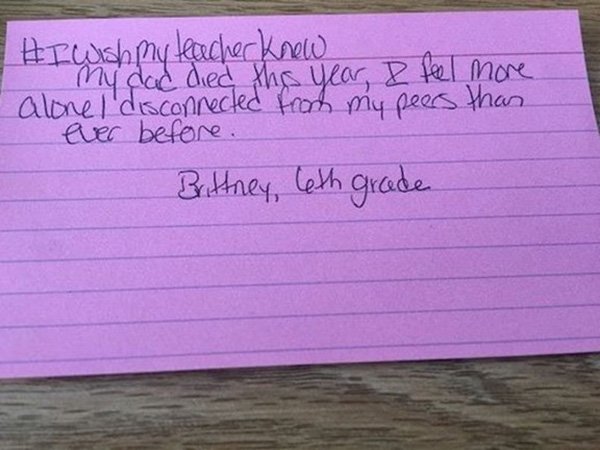 #IWishMyTeacherKnew
My dad died this year, I feel more
alone/disconnected from my peers than
ever before.
Brittney, 6th grade